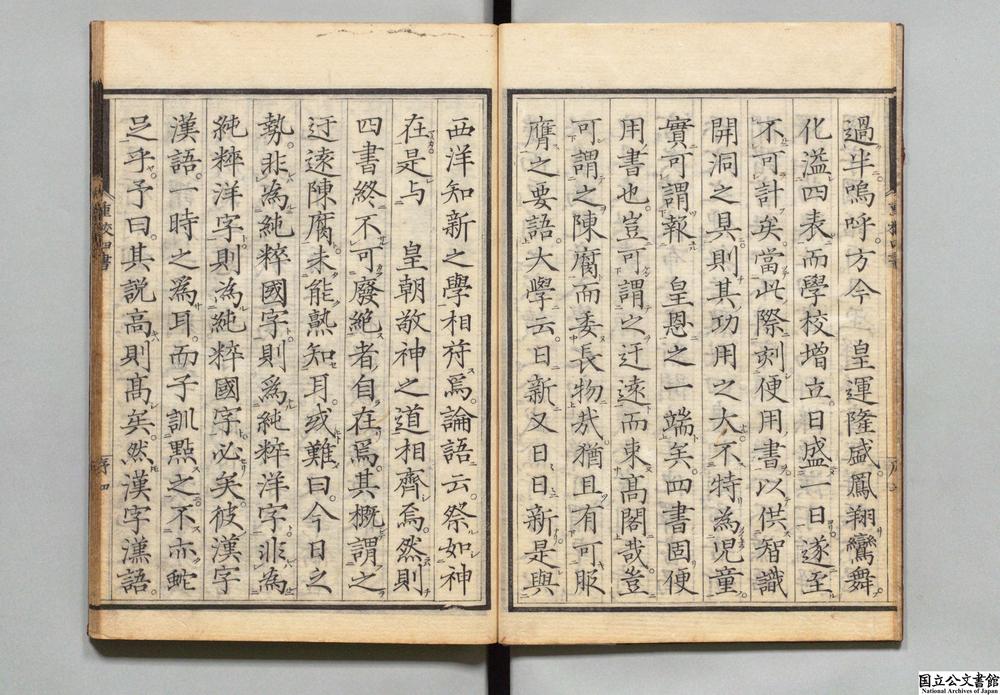 過半嗚呼方今　皇運隆盛鳳翔鸞舞
化溢四表而學校增立日盛一日遂至
不可計矣當此際刻便用書以供智識
開洞之具則其功用之大不特為児童
實可謂報　皇恩之一端矣四書固便
用書也豈可謂之迂遠而束髙閣哉豈
可謂之陳腐而委長物哉猶且有可服
膺之要語大學云日新又日日新是與
西洋知新之學相符焉論語云祭如神
在是与　皇朝敬神之道相齊焉然則
四書終不可廢絶者自在焉其概謂之
迂遠陳腐未能熟知耳或難曰今日之
勢非為純粹國字則為純粹洋字非為
純粹洋字則為純粹國字必矣彼漢字
漢語一時之為耳而子訓點之不亦蛇
足乎予曰其説高則髙矣然漢字漢語
重校四書
序四
国立公文書館
National Archives of Japan